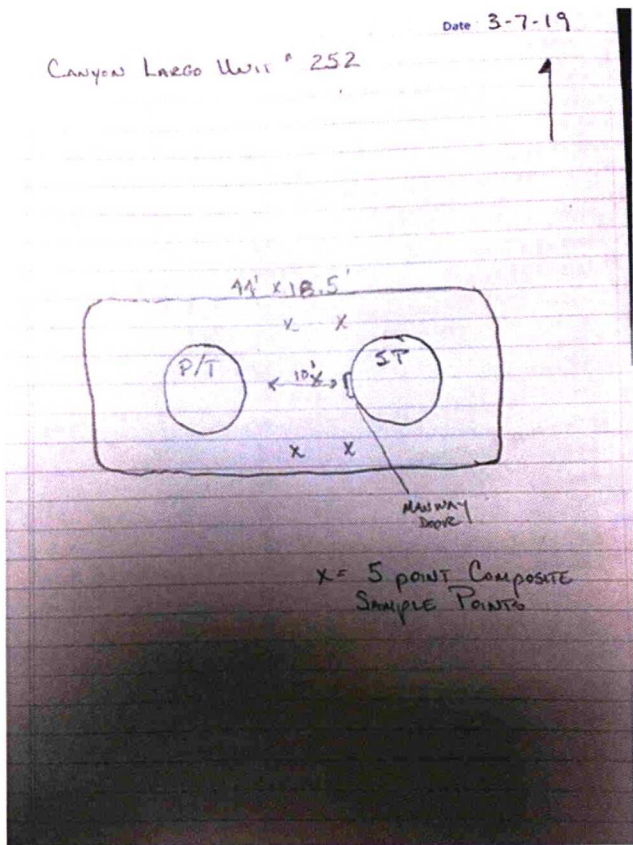 Date 3-7-19
CANYON LARGO UNIT # 252
44' x 18.5'
x x
P/T
10'
x
ST
x x
MANWAY
DOOR
x = 5 POINT COMPOSITE
SAMPLE POINTS